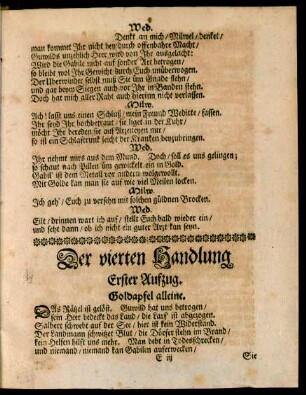 Wed.
Denkt an mich / Milwel / denket /
man kommet Ihr nicht bey durch offenbahre Macht /
Guwilds unzehlich Heer wird von Ihr ausgelacht:
Wird die Gabile nicht auf sonder Art betrogen /
so bleibt wol Ihr Gewicht durch Euch unüberwogen.
Der Uberwinder selbst muß Sie üm Gnade flehn /
und gar bevor Siegen auch vor Ihr in Banden stehn.
Doch hat mich aller Raht auch hierinn nicht verlassen.
Milw.
Ich lasst uns einen Schluß / mein Freund Weditte / fassen.
Ihr seyd Ihr hochbetraut / sie liget in der Ruhr /
möcht Ihr bereden sie auf Artzeneyen nur /
so ist ein Schlaftrunk leicht der Kranken beyzubringen.
Wed.
Ihr nehmt mirs aus dem Mund. Doch / soll es uns gelingen;
so schaut nach Pillen üm gewickelt ein in Gold.
Gabil' ist dem Metall vor andern wolgewollt.
Mit Golde kan man sie auf wie viel Meilen locken.
Milw.
Ich geh / Euch zu versehn mit solchen güldnen Brocken.
Wed.
Eilt / drinnen wart ich auf / stellt Euch bald wieder ein /
und seht dann / ob ich nicht ein guter Arzt kan seyn.
Der vierten Handlung
Erster Aufzug.
Goldapfel alleine.
DAs Rätzel ist gelöst. Guwild hat uns betrogen /
sein Heer bedeckt das Land / die Larf' ist abgezogen.
Salbert schwebt auf der See / hier ist kein Widerstand.
Der Landmann schwitzet Blut / die Dörfer stehn im Brand /
kein Helfen hilft uns mehr. Man bebt in Todesschrecken /
und niemand / niemand kan Gabilen auferwecken /
E iij
Sie